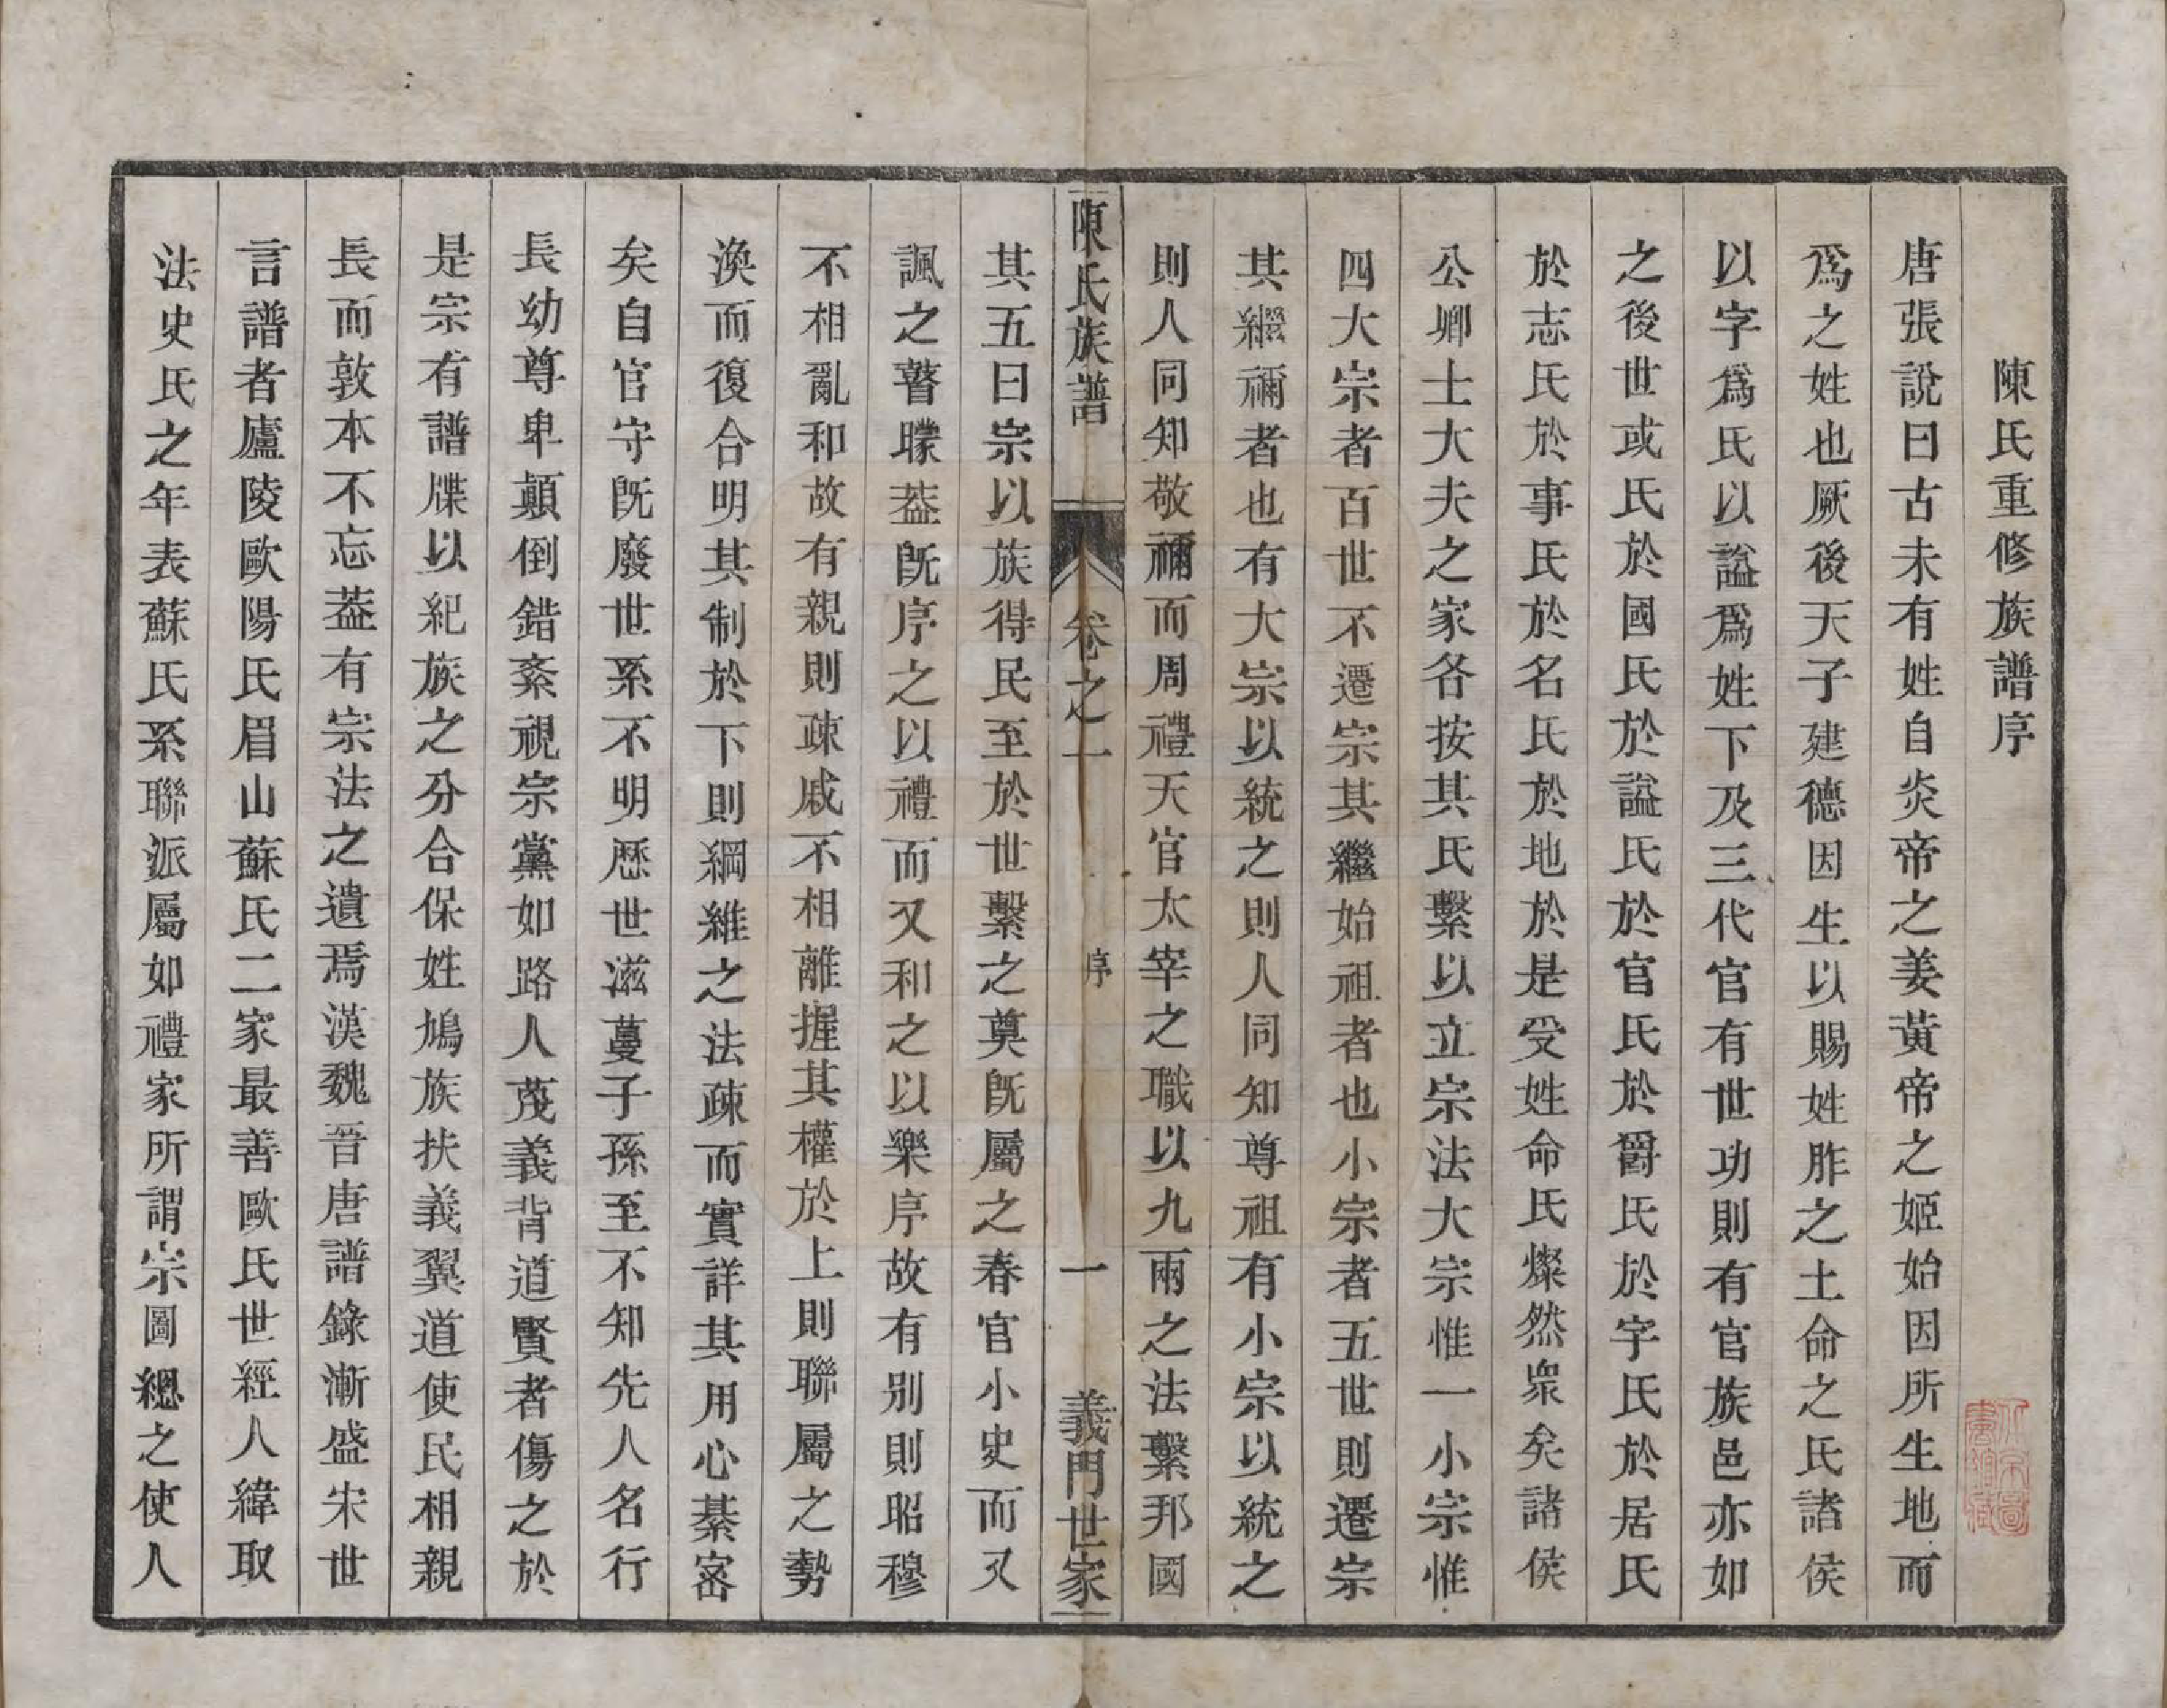 陳氏重修族譜序
唐張說曰古未有姓自炎帝之姜黃帝之姬始因所生地而
爲之姓也厥後天子建德因生以賜姓胙之土命之氏諸侯
以字爲氏以謚爲姓下及三代官有世功則有官族邑亦如
之後世或氏於國氏於謚氏於官氏於爵氏於字氏於居氏
於志氏於事氏於名氏於地於是受姓命氏燦然衆矣諸侯
公卿士大夫之家各按其氏繫以立宗法大宗惟一小宗惟
四大宗者百世不遷宗其繼始祖者也小宗者五世則遷宗
其繼禰者也有大宗以統之則人同知尊祖有小宗以統之
則人同知敬禰而周禮天官太宰之職以九兩之法繫邦國
陳氏族譜 卷之一 序 一 義門世家
其五曰宗以族得民至於世繫之奠旣屬之春官小史而又
諷之瞽矇葢旣序之以禮而又和之以樂序故有別則昭穆
不相亂和故有親則疎戚不相離握其權於上則聯屬之勢
渙而復合明其制於下則綱維之法疎而實詳其用心綦密
矣自官守旣廢世系不明歷世滋蔓子孫至不知先人名行
長幼尊卑顚倒錯紊視宗黨如路人蔑義背道賢者傷之於
是宗有譜牒以紀族之分合保姓鳩族扶義翼道使民相親
長而敦本不忘葢有宗法之遺焉漢魏晉唐譜錄漸盛宋世
言譜者廬陵歐陽氏眉山蘇氏二家最善歐氏世經人緯取
法史氏之年表蘇氏系聯派屬如禮家所謂宗圖總之使人